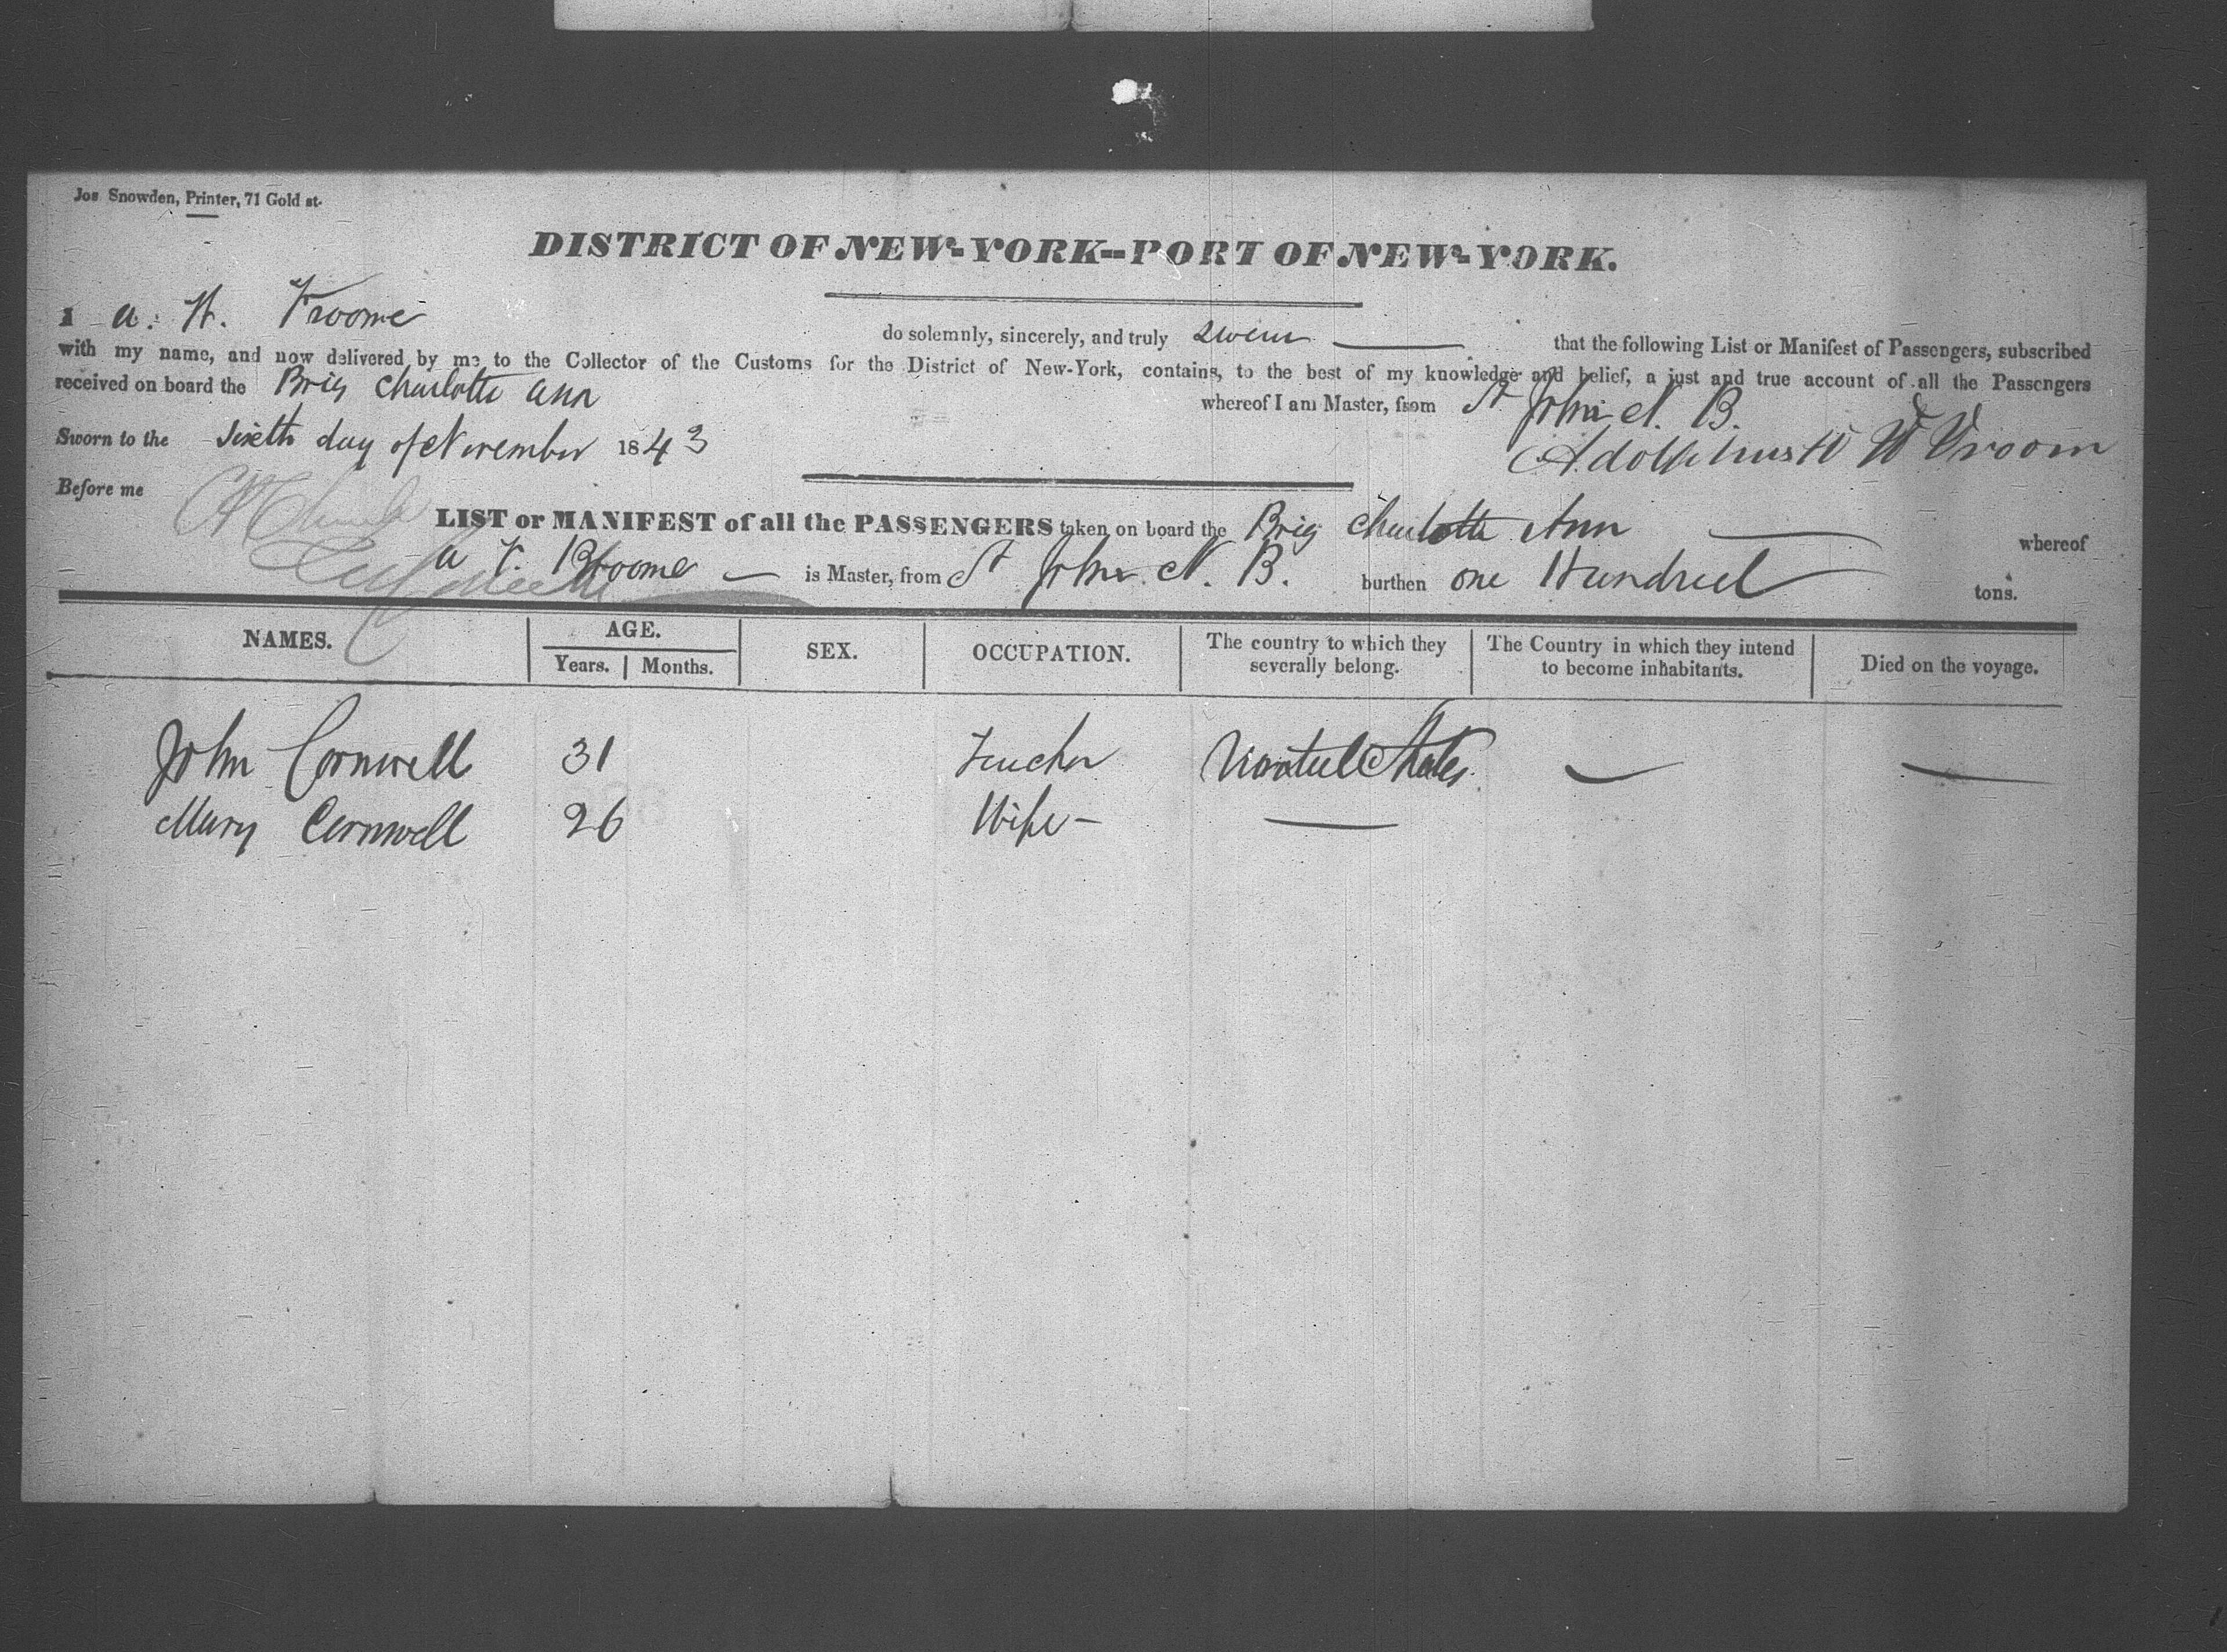 Jos Snowden, Printer, 71 Gold st.
DISTRICT OF NEW-YORK--PORT OF NEW-YORK.
I A. W. Vroome do solemnly, sincerely, and truly swear that the following List or Manifest of Passengers, subscribed
with my name, and now delivered by me to the Collector of the Customs for the District of New-York, contains, to the best of my knowledge and belief, a just and true account of all the Passengers
received on board the Brig Charlotte Ann whereof I am Master, from St John N. B.
Sworn to the Sixth day of November 1843 Adolphus W Vroom
Before me
LIST or MANIFEST of all the PASSENGERS taken on board the Brig Charlotte Ann whereof
is Master, from St John N. B. burthen one Hundred tons.
NAMES. AGE. SEX. OCCUPATION. The country to which they severally belong. The Country in which they intend to become inhabitants. Died on the voyage.
Years. Months.
John Cornwell 31 Teacher United States
Mary Cornwell 26 Wife